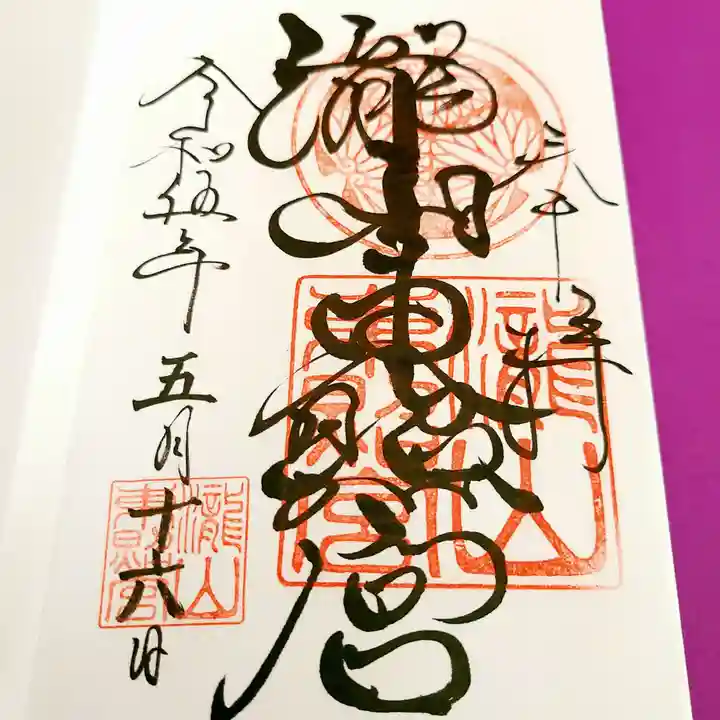 奉拝
瀧山東照宮
令和伍年五月十六日
瀧山
東照宮
瀧山
東照宮